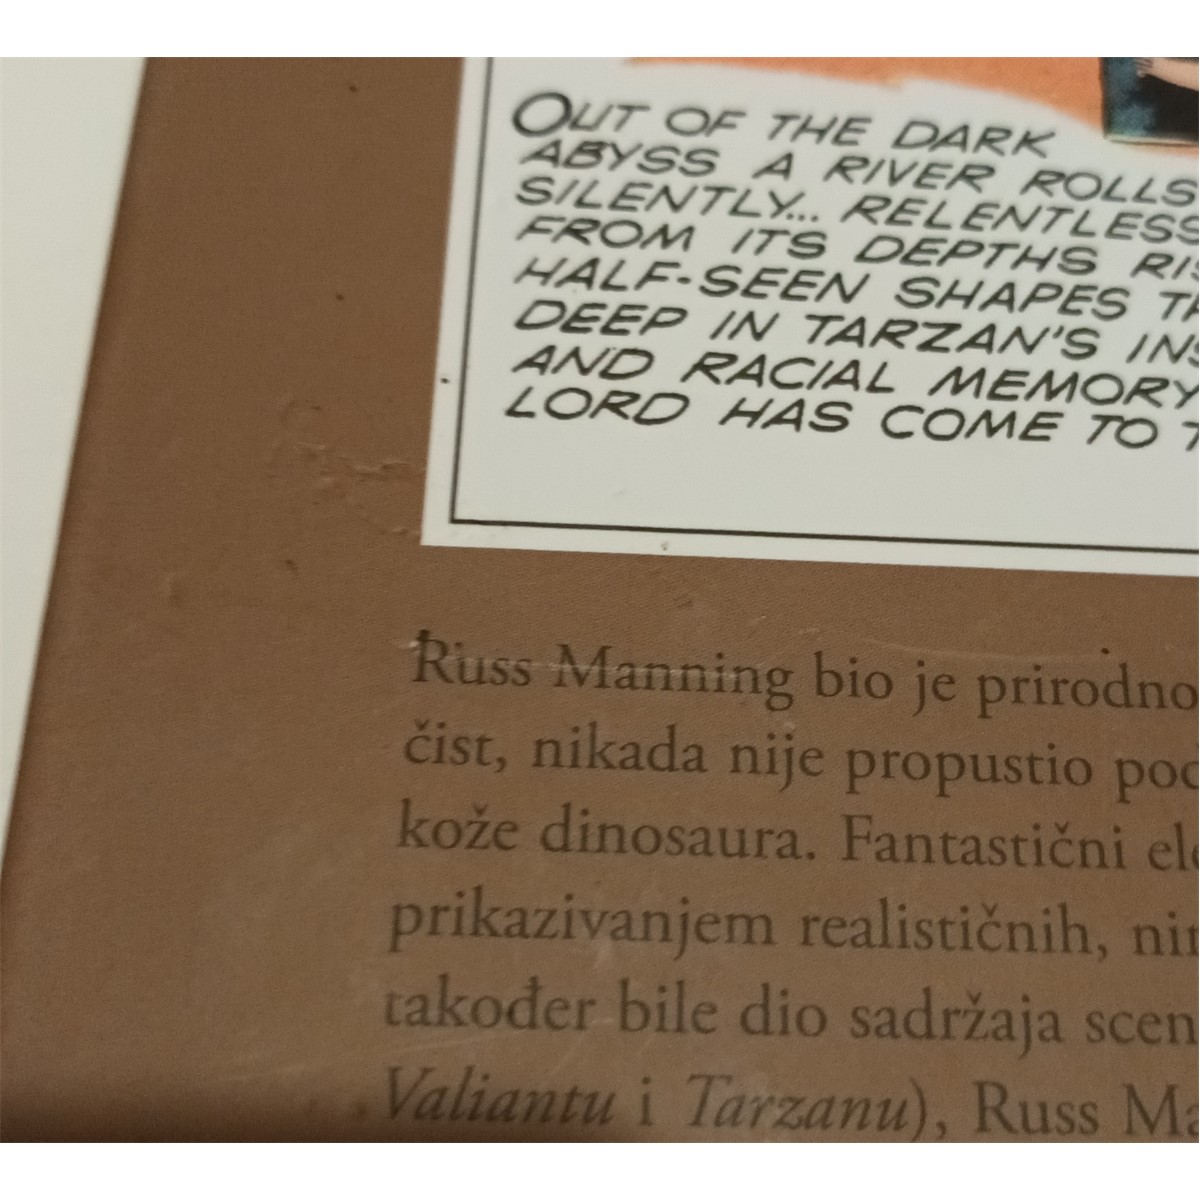 OUT OF THE DARK
ABYSS A RIVER ROLLS
SILENTLY... RELENTLESS
FROM ITS DEPTHS RIS
HALF-SEEN SHAPES TH
DEEP IN TARZAN'S INS
AND RACIAL MEMORY
LORD HAS COME TO T
Russ Manning bio je prirodno
čist, nikada nije propustio poc
kože dinosaura. Fantastični ele
prikazivanjem realističnih, nin
također bile dio sadržaja scen
Valiantu i Tarzanu), Russ Ma